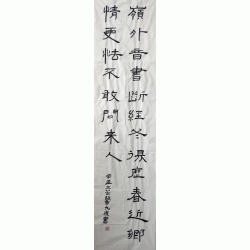 嶺外音書斷經冬復歷春近鄉
情更怯不敢問來人